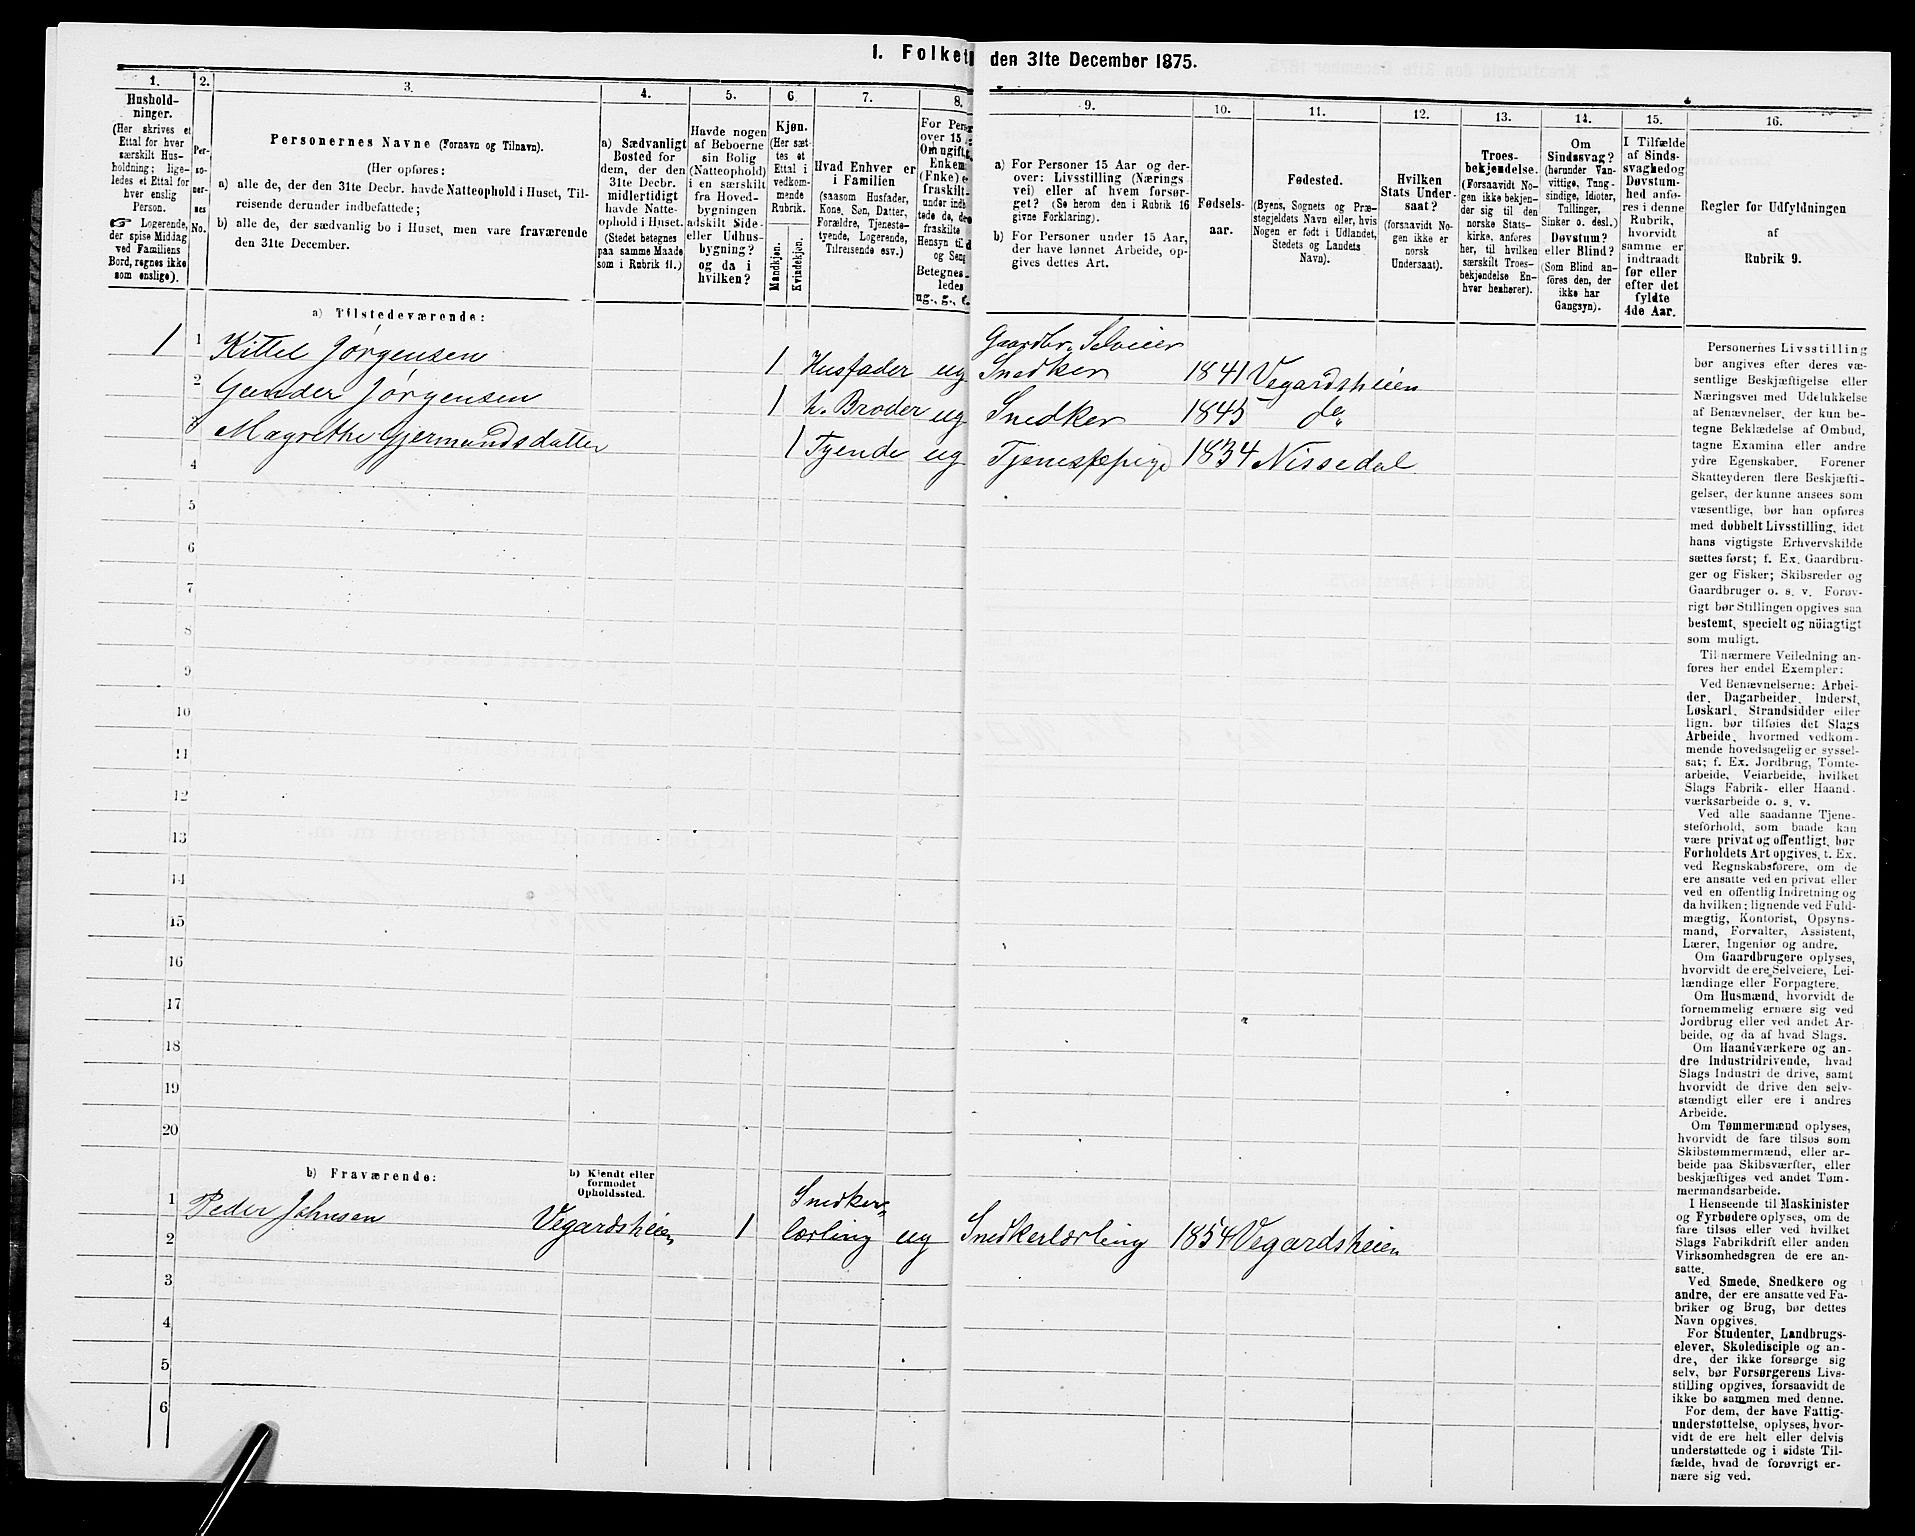 1. Folket den 31te December 1875.
1.
Hushold-
ninger.
(Her skrives et
Ettal for hver
særskilt Hus-
holdning; lige-
ledes et Ettal for
hver enslig
Person.
☞ Logerende,
der spise Middag
ved Familiens
Bord, regnes ikke
som enslige).
2.
Per-
so-
ner-
nes
No.
3.
Personernes Navne (Fornavn og Tilnavn).
(Her opføres:
a) alle de, der den 31te Decbr. havde Natteophold i Huset, Til-
reisende derunder indbefattede;
b) alle de, der sædvanlig bo i Huset, men vare fraværende
den 31te December.
4.
a) Sædvanligt
Bosted for
dem, der den
31te Decbr.
midlertidigt
havde Natte-
ophold i Huset.
(Stedet betegnes
paa samme Maade
som i Rubrik 11.)
5.
Havde nogen
af Beboerne
sin Bolig
(Natteophold)
i en særskilt
fra Hoved-
bygningen
adskilt Side-
eller Udhus-
bygning?
og da i
hvilken?
6.
Kjøn.
(Her sæt-
tes et
Ettal i
vedkom-
mende
Rubrik.
Mandkjøn.
Kvindekjøn.
7.
Hvad Enhver er
i Familien
(saasom Husfader,
Kone, Søn, Datter,
Forældre, Tjeneste-
tyende, Logerende,
Tilreisende osv.)
8.
For Perso
over 15
Om ugift,
Enkem
(Fnke) e
fraskilt
under indb
tede de, de
fraskilte
Hensyn til
og Seng
Betegnes
ledes
ug., g., e.
9.
a) For Personer 15 Aar og der-
over: Livsstilling (Nærings
vei) eller af hvem forsør-
get? (Se herom den i Rubrik 16
givne Forklaring).
b) For Personer under 15 Aar,
der have lønnet Arbeide, op-
gives dettes Art.
10.
Fødsels-
aar.
11.
Fødested.
(Byens, Sognets og Præ-
stegjeldets Navn eller, hvis
Nogen er født i Udlandet,
Stedets og Landets
Navn).
12.
Hvilken
Stats Under-
saat?
(forsaavidt No-
gen ikke er
norsk
Undersaat).
13.
Troes-
bekjendelse.
(Forsaavidt No-
gen ikke bekjen-
der sig til den
norske Stats-
kirke, anføres
her, til hvilken
særskilt Troes-
bekjendelse En-
hver henhører).
14.
Om
Sindssvag?
(herunder Van-
vittige, Tung-
sindige, Idioter,
Tullinger,
Sinker o. desl.)
Døvstum?
eller Blind?
(Som Blind an-
føres den, der
ikke har
Gangsyn).
15.
I Tilfælde
af Sinds-
svaghed og
Døvstum-
hed anfø-
res i denne
Rubrik,
hvorvidt
samme er
indtraadt
før eller
efter det
fyldte
4de Aar.
16.
Regler for Udfyldningen
af
Rubrik 9.
a) Tilstedeværende:
1 1 Kittel Jørgensen 1 Husfader ug Gaardbr. Selveier
Snedker 1841 Vegardsheien
2 Gunder Jørgensen 1 h. Broder ug Snedker 1845 do
3 Magrethe Gjermundsdatter 1 Tyende ug Tjenestepige 1834 Nissedal
4
5
6
7
8
9
10
11
12
13
14
15
16
17
18
19
20
b) Fraværende:
b) Kjendt eller
formodet
Opholdssted.
1 Peder Johnsen Vegardsheien 1 Snedker-
lærling ug Snedkerlærling 1854 Vegardsheien
2
3
4
5
6
Personernes Livsstilling
bør angives efter deres væ-
sentlige Beskjæftigelse eller
Næringsvei med Udelukkelse
af Benævnelser, der kun be-
tegne Beklædelse af Ombud,
tagne Examina eller andre
ydre Egenskaber. Forener
Skatteyderen flere Beskjæfti-
gelser, der kunne ansees som
væsentlige, bør han opføres
med dobbelt Livsstilling, idet
hans vigtigste Erhvervskilde
sættes først; f. Ex. Gaardbru-
ger og Fisker; Skibsreder og
Gaardbruger o. s. v. Forøv-
rigt bør Stillingen opgives saa
bestemt, specielt og nöiagtigt
som muligt.
Til nærmere Veiledning an-
føres her endel Exempler:
Ved Benævnelserne: Arbei-
der, Dagarbeider, Inderst,
Løskarl, Strandsidder eller
lign. bør tilføies det Slags
Arbeide, hvormed vedkom-
mende hovedsagelig er syssel-
sat; f. Ex. Jordbrug, Tomte-
arbeide, Veiarbeide, hvilket
Slags Fabrik- eller Haand-
værksarbeide o. s. v.
Ved alle saadanne Tjene-
steforhold, som baade kan
være privat og offentligt, bør
Forholdets Art opgives, t. Ex.
ved Regnskabsførere, om de
ere ansatte ved en privat eller
ved en offentlig Indretning og
da hvilken; lignende ved Fuld-
mægtig, Kontorist, Opsyns-
mand, Forvalter, Assistent,
Lærer, Ingeniør og andre.
Om Gaardbrugere oplyses,
hvorvidt de ere Selveiere, Lei-
lændinge eller Forpagtere.
Om Husmænd, hvorvidt de
fornemmelig ernære sig ved
Jordbrug eller ved andet Ar-
beide, og da af hvad Slags.
Om Haandværkere og an-
dre Industridrivende, hvad
Slags Industri de drive, samt
hvorvidt de drive den selv-
stændigt eller ere i andres
Arbeide.
Om Tømmermænd oplyses,
hvorvidt de fare tilsøs som
Skibstømmermænd, eller ar-
beide paa Skibsværfter, eller
beskjæftiges ved andet Tøm-
mermandsarbeide.
I Henseende til Maskinister
og Fyrbødere oplyses, om de
fare tilsøs eller ved hvilket
Slags Fabrikdrift eller anden
Virksomhedsgren de ere an-
satte.
Ved Smede, Snedkere og
andre, der ere ansatte ved Fa-
briker og Brug, bør dettes
Navn opgives.
For Studenter, Landbrugs-
elever, Skoledisciple og an-
dre, der ikke forsørge sig
selv, bør Forsørgerens Livs-
stilling opgives, forsaavidt de
ikke bo sammen med denne.
For dem, der have Fattig-
understøttelse, oplyses, hvor-
vidt de ere helt eller delvis
understøttede og i sidste Til-
fælde, hvad de forøvrigt er-
nære sig ved.